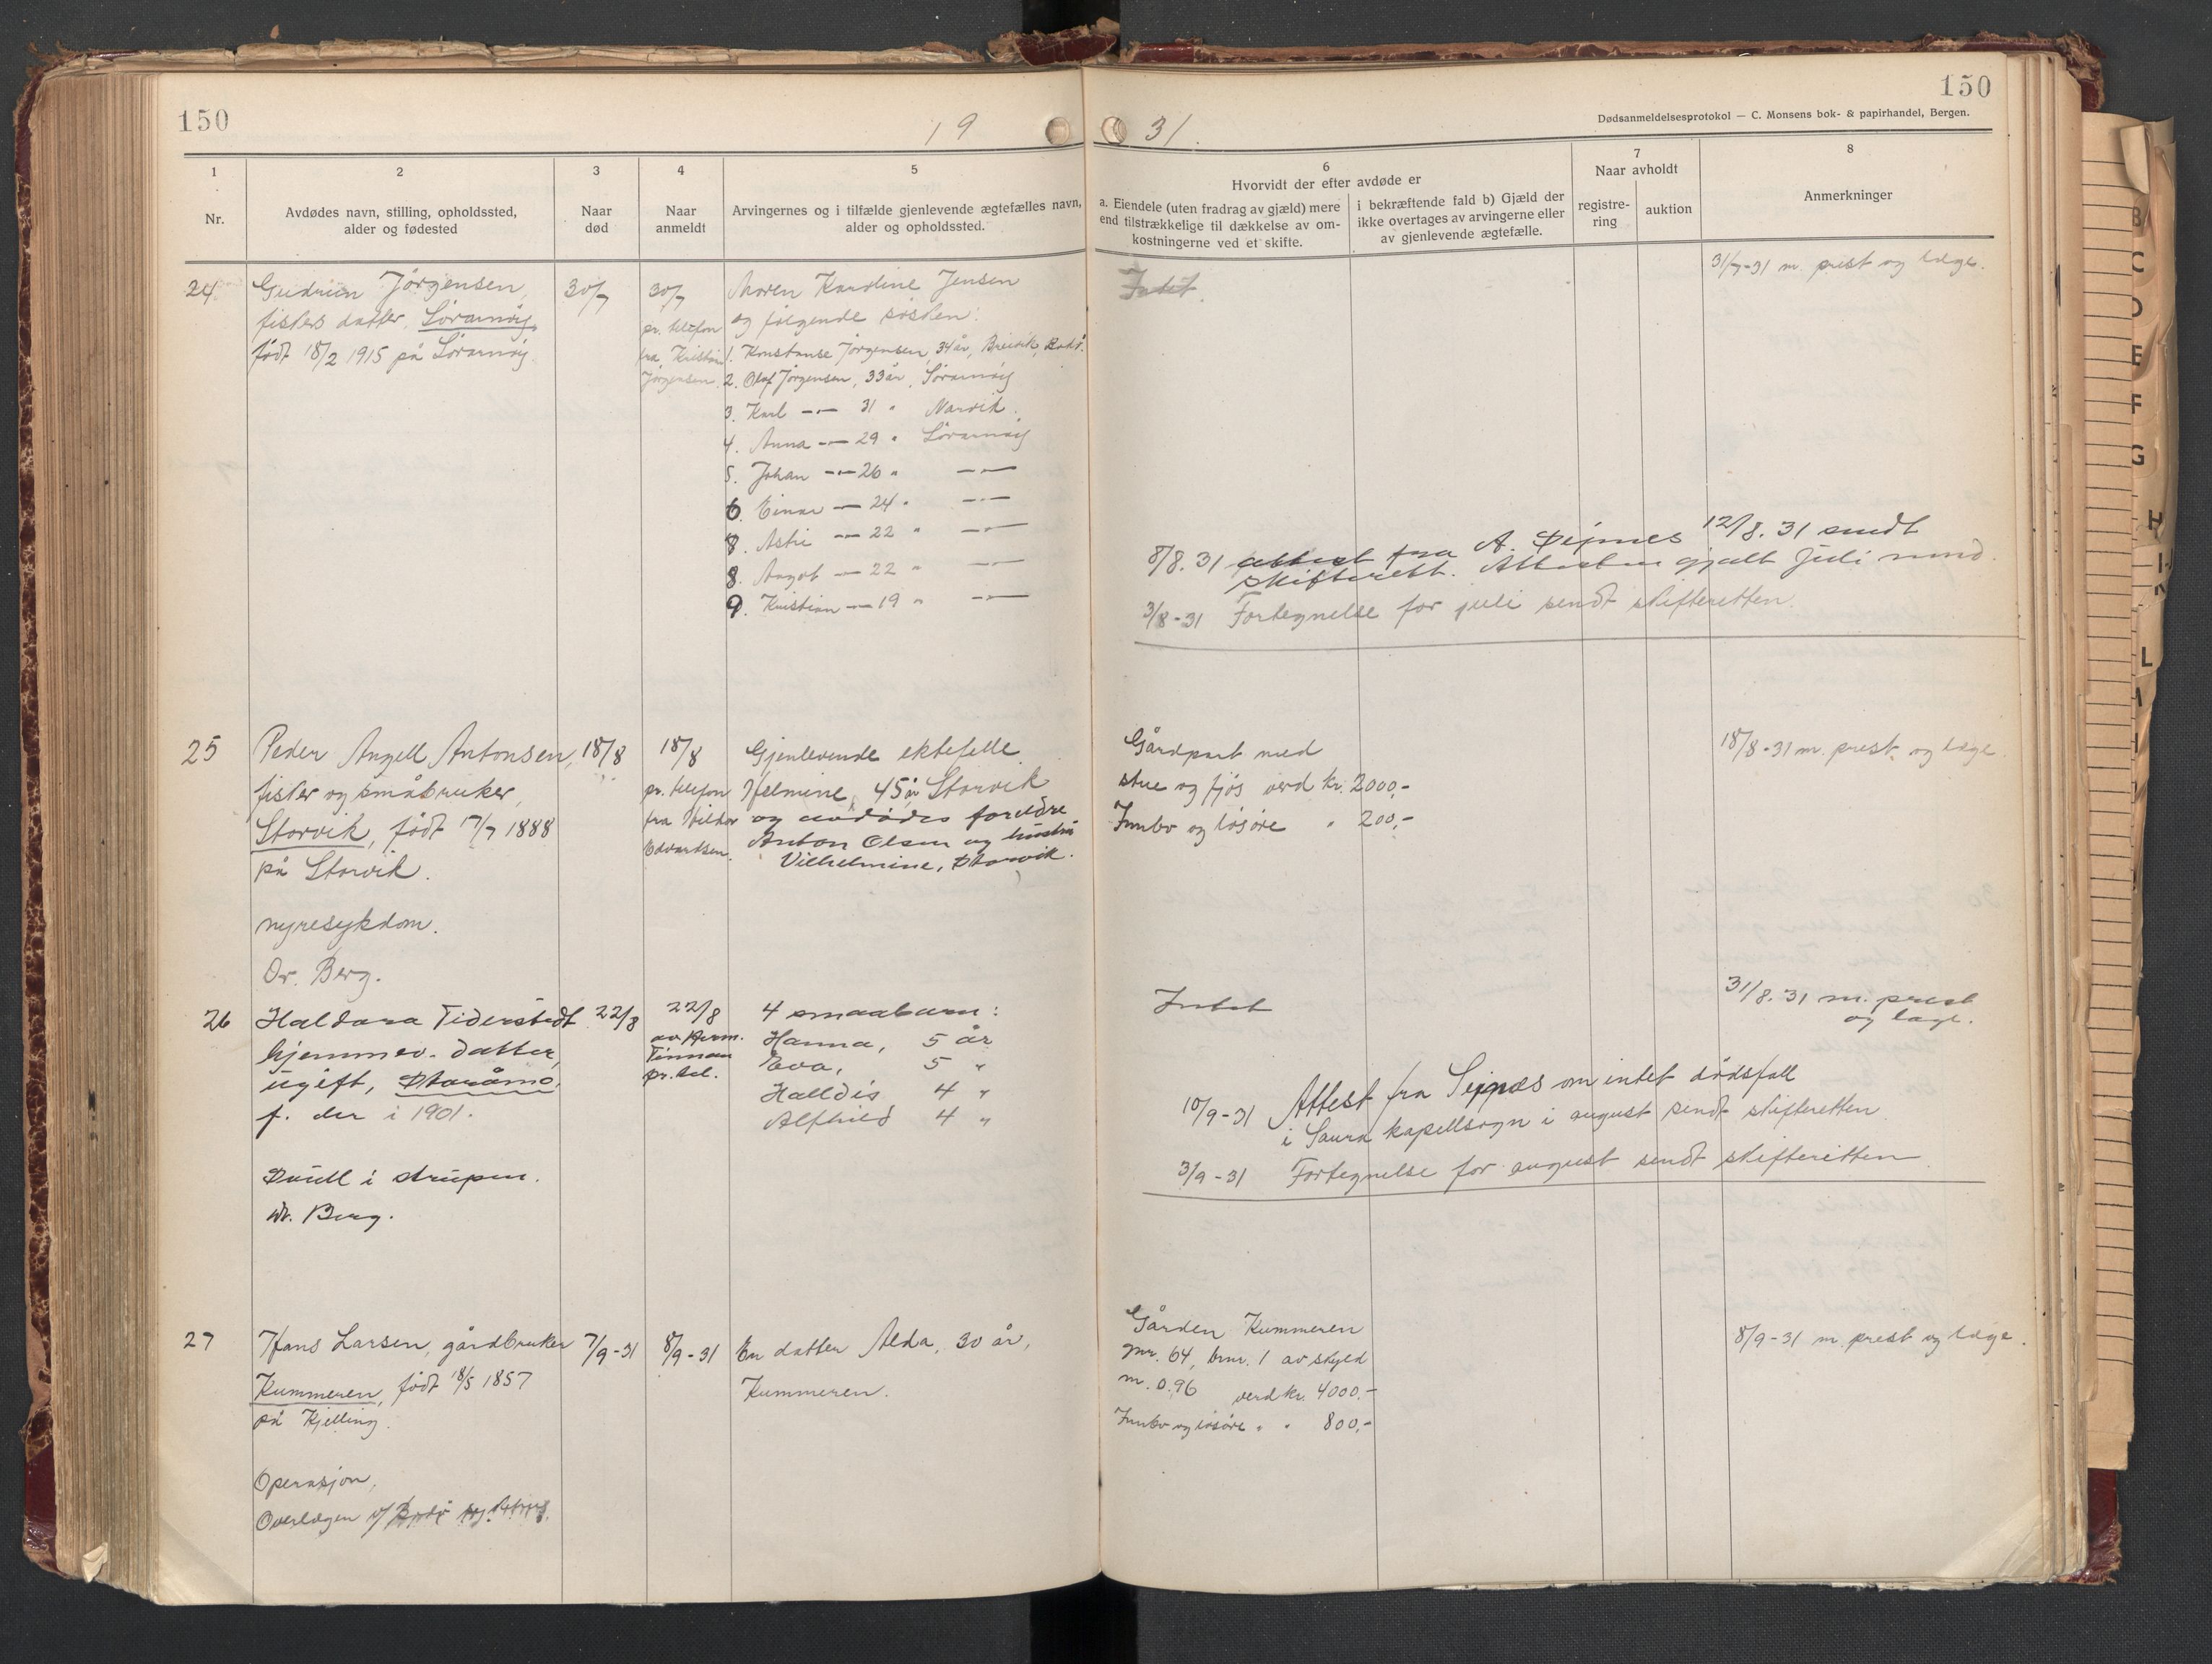 150
19
31.
150
Dødsanmeldelsesprotokol — C. Monsens bok- & papirhandel, Bergen.
1
Nr.
2
Avdødes navn, stilling, opholdssted,
alder og fødested
3
Naar
død
4
Naar
anmeldt
5
Arvingernes og i tilfælde gjenlevende ægtefælles navn,
alder og opholdssted.
6
Hvorvidt der efter avdøde er
a. Eiendele (uten fradrag av gjæld) mere
end tilstrækkelige til dækkelse av om-
kostningerne ved et skifte.
i bekræftende fald b) Gjæld der
ikke overtages av arvingerne eller
av gjenlevende ægtefælle.
7
Naar avholdt
registre-
ring
auktion
8
Anmerkninger
24
Gudrun Jørgensen,
fiskers datter, Sørarnøy
født 18/2 1915 på Sørarnøy
30/7
30/7
pr. telefon
fra Kristian
Jørgensen.
Maren Karoline Jensen
og følgende søsken:
1. Konstanse Jørgensen, 34 år, Breivik, Bodø.
2. Olaf Jørgensen, 33 år, Sørarnøy
3. Karl —"— 31 " Narvik.
4. Anna —"— 29 " Sørarnøy
5. Johan —"— 26 " —"—
6. Einar —"— 24 " —"—
8. Astri —"— 22 " —"—
8. Angot —"— 22 " —"—
9. Kristian —"— 19 " —"—
Intet.
31/7-31 m. prest og læge.
8/8. 31 attest fra A. Seines 12/8. 31 sendt
skifterett. Attesten gjalt juli mnd.
3/8-31 Fortegnelse for juli sendt skifteretten.
25
Peder Angell Antonsen,
fisker og småbruker,
Storvik, født 17/7 1888
på Storvik.
nyresykdom.
Dr. Berg.
18/8
18/8
pr. telefon
fra Hildor
Edvardsen.
Gjenlevende ektefelle
Helmine, 45 år Storvik
og avdødes foreldre
Anton Olsen og hustru
Vilhelmine, Storvik.
Gårdpart med
stue og fjøs verd kr. 2000,-
Innbo og løsøre " 200,-
18/8-31 m. prest og læge.
26
Haldora Tiderstedt
hjemmev. datter,
ugift, Storåmo,
f. der i 1901.
Svull i strupen.
dr. Berg.
22/8
22/8
av Herm.
Finman
pr. tel.
4 smaabarn:
Hanna, 5 år
Eva, 5 "
Halldis 4 "
Alfhild 4 "
Intet
31/8. 31 m. prest
og læge.
10/9-31 Attest fra Seines om intet dødsfall
i Saura kapellsogn i august sendt skifteretten
3/9-31 Fortegnelse for august sendt skifteretten
27
Hans Larsen, gårdbruker
Kummeren, født 18/5 1857
på Kjelling.
Operasjon,
Overlægen v/ Bodø
7/9-31
8/9-31
En datter Alda, 30 år,
Kummeren.
Gården Kummeren
gnr. 64, brnr. 1 av skyld
m. 0.96 verd kr. 4000.-
Innbo og løsøre " " 800,-
8/9-31 m. prest og læge.
B
C
D
E
F
G
H
L